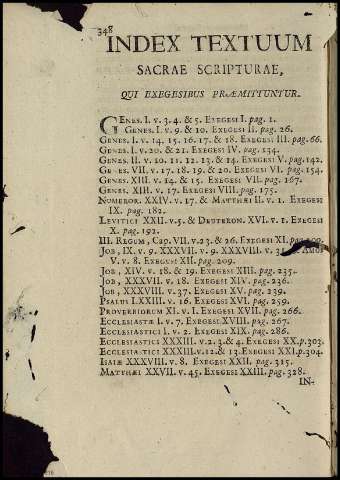 348
INDEX TEXTUUM
SACRAE SCRIPTURAE,
QUI EXEGESIBUS PRÆMITTUNTUR.
GENES. I. v. 3. 4. & 5. EXEGESI I. pag. 1.
GENES. I. v. 9. & 10. EXEGESI II. pag. 26.
GENES. I. v. 14. 15. 16. 17. & 18. EXEGESI III. pag. 66.
GENES. I. v. 20. & 21. EXEGESI IV. pag. 134.
GENES. II. v. 10. 11. 12. 13. & 14. EXEGESI V. pag. 142.
GENES. VII. v. 17. 18. 19. & 20. EXEGESI VI. pag. 154.
GENES. XIII. v. 14. & 15. EXEGESI VII. pag. 167.
GENES. XIII. v. 17. EXEGESI VIII. pag. 175.
NUMEROR. XXIV. v. 17. & MATTHÆI II. v. 1. EXEGESI
IX. pag. 182.
LEVITICI XXII. v. 5. & DEUTERON. XVI. v. 1. EXEGESI
X. pag. 192.
III. REGUM, Cap. VII. v. 23. & 26. EXEGESI XI. pag.
JOB, IX. v. 9. XXXVII. v. 9. XXXVIII. v. 31.
V. v. 8. EXEGESI XII. pag. 209.
JOB, XIV. v. 18. & 19. EXEGESI XIII. pag. 235.
JOB, XXXVII. v. 18. EXEGESI XIV. pag. 236.
JOB, XXXVIII. v. 37. EXEGESI XV. pag. 239.
PSALUS LXXIII. v. 16. EXEGESI XVI. pag. 259.
PROVERBIORUM XI. v. 1. EXEGESI XVII. pag. 266.
ECCLESIASTÆ I. v. 7. EXEGESI XVIII. pag. 267.
ECCLESIASTICI I. v. 2. EXEGESI XIX. pag. 286.
ECCLESIASTICI XXXIII. v. 2. 3. & 4. EXEGESI XX. p. 303.
ECCLESIASTICI XXXIII. v. 12. & 13. EXEGESI XXI. p. 304.
ISAIÆ XXXVIII. v. 8. EXEGESI XXII. pag. 315.
MATTHÆI XXVII. v. 45. EXEGESI XXIII. pag. 328.
IN-